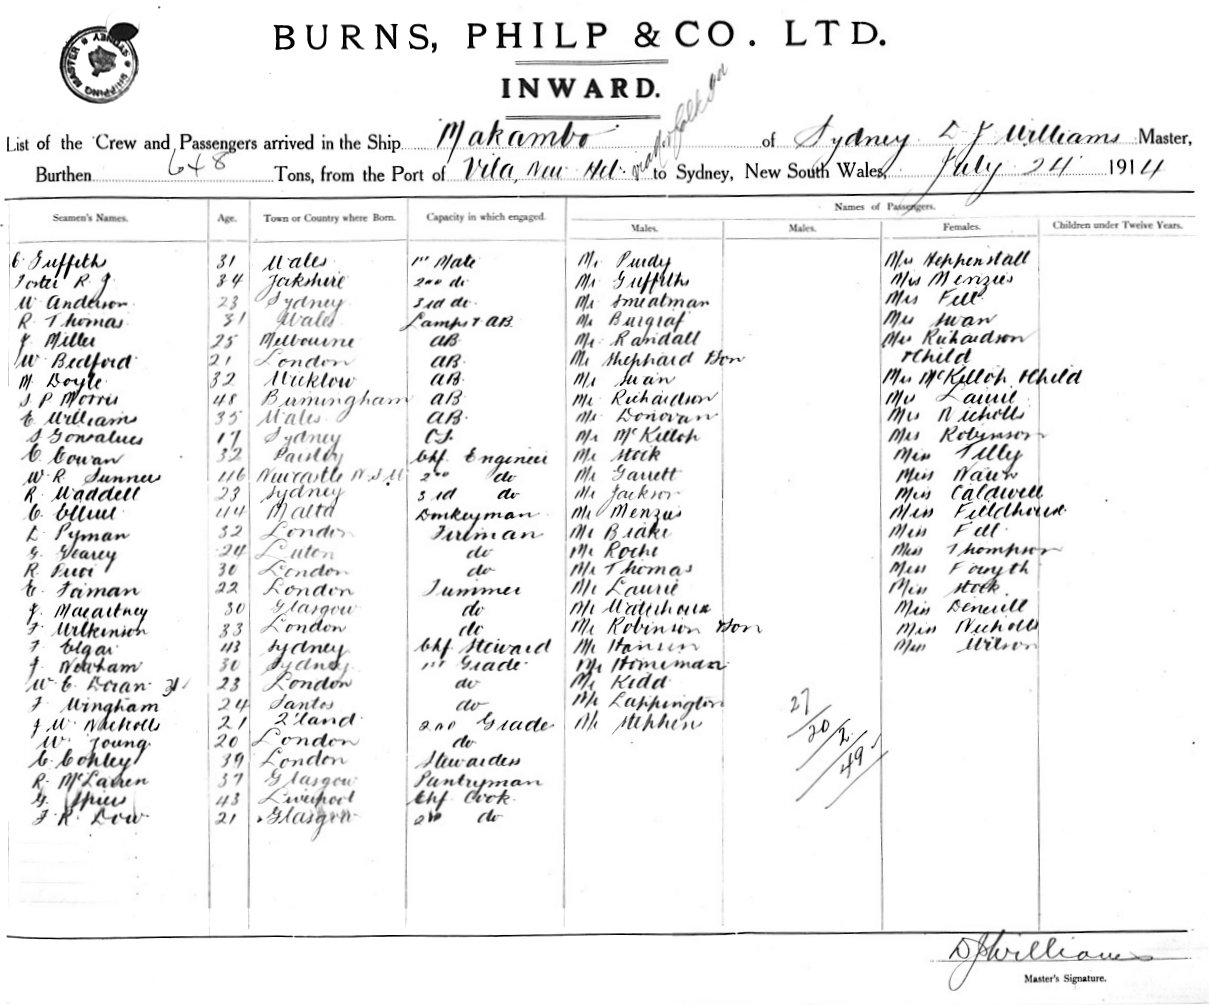 SHIPPING MASTER SYDNEY
BURNS, PHILP & CO. LTD.
INWARD.
List of the Crew and Passengers arrived in the Ship Makambo of Sydney D J Williams Master,
Burthen 648 Tons, from the Port of Vila, New Heb. via Norfolk Isd to Sydney, New South Wales, July 24 1914
Names of Passengers.
Seamen's Names. Age. Town or Country where Born. Capacity in which engaged. Males. Males. Females. Children under Twelve Years.
C. Griffiths 31 Wales 1st Mate Mr Purdy Mrs Heppenstall
Foster R. J. 34 Yorkshire 2nd do Mr Griffiths Mrs Menzies
W Anderson 23 Sydney 3rd do Mr Smeatman Mrs Fell
R Thomas 31 Wales Lamps & AB Mr Burgraf Mrs Swan
J Miller 25 Melbourne AB Mr Randall Mrs Richardson
W Bedford 21 London AB Mr Shephard & Son & Child
M Doyle 32 Wicklow AB Mr Swan Mrs McKilloh & Child
J P Morris 48 Birmingham AB Mr Richardson Mrs Laurie
E Williams 35 Wales AB Mr Donovan Mrs Nicholls
S Gonsalves 17 Sydney O.S. Mr McKilloh Mrs Robinson
C Cowan 32 Paisley Chf Engineer Mr Stock Miss Tilly
W R Sunner 46 Newcastle N.S.W 2nd do Mr Garrett Miss
R. Waddell 23 Sydney 3rd do Mr Jackson Miss Caldwell
C. 44 Malta Donkeyman Mr Menzies Miss Fieldhouse
L Pyman 32 London Fireman Mr Brake Miss Fell
G Gearey 24 Luton do Mr Roche Miss Thompson
R 30 London do Mr Thomas Miss Forsyth
E. Foiman 22 London Trimmer Mr Laurie Miss Stock
J. Macartney 30 Glasgow do Mr Waterhouse Miss
F Wilkinson 33 London do Mr Robinson & Son Miss Nicholls
F Elgar 43 Sydney Chf Steward Mr Hansen Miss Wilson
J Newham 30 Sydney 1st Grade Mr Horneman
W. E. Doran 23 London do Mr Kidd
F Wingham 24 Santos do Mr Lappington 27
J W Nicholls 21 Q'land 2nd Grade Mr Stephen 20 2
W. Young 20 London do 49
C. Conley 39 London Stewardess
R. McLaren 37 Glasgow Pantryman
G. Spiers 43 Liverpool Chf Cook
F R Dow 21 Glasgow 2nd do
D J Williams
Master's Signature.